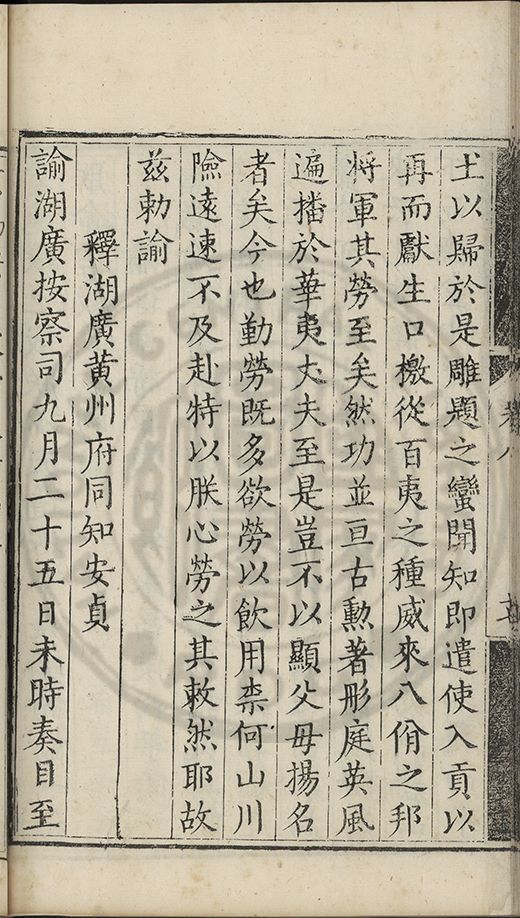 土以歸於是雕題之蠻聞知即遣使入貢以
再而獻生口檄從百夷之種威來八佾之邦
将軍其勞至矣然功並亘古勳著形庭英風
遍播於華夷丈夫至是豈不以顯父母揚名
者矣今也勤勞既多欲勞以飲用柰何山川
險遠速不及赴特以朕心勞之其敕然耶故
兹勅諭
釋湖廣黃州府同知安貞
諭湖廣按察司九月二十五日未時奏目至